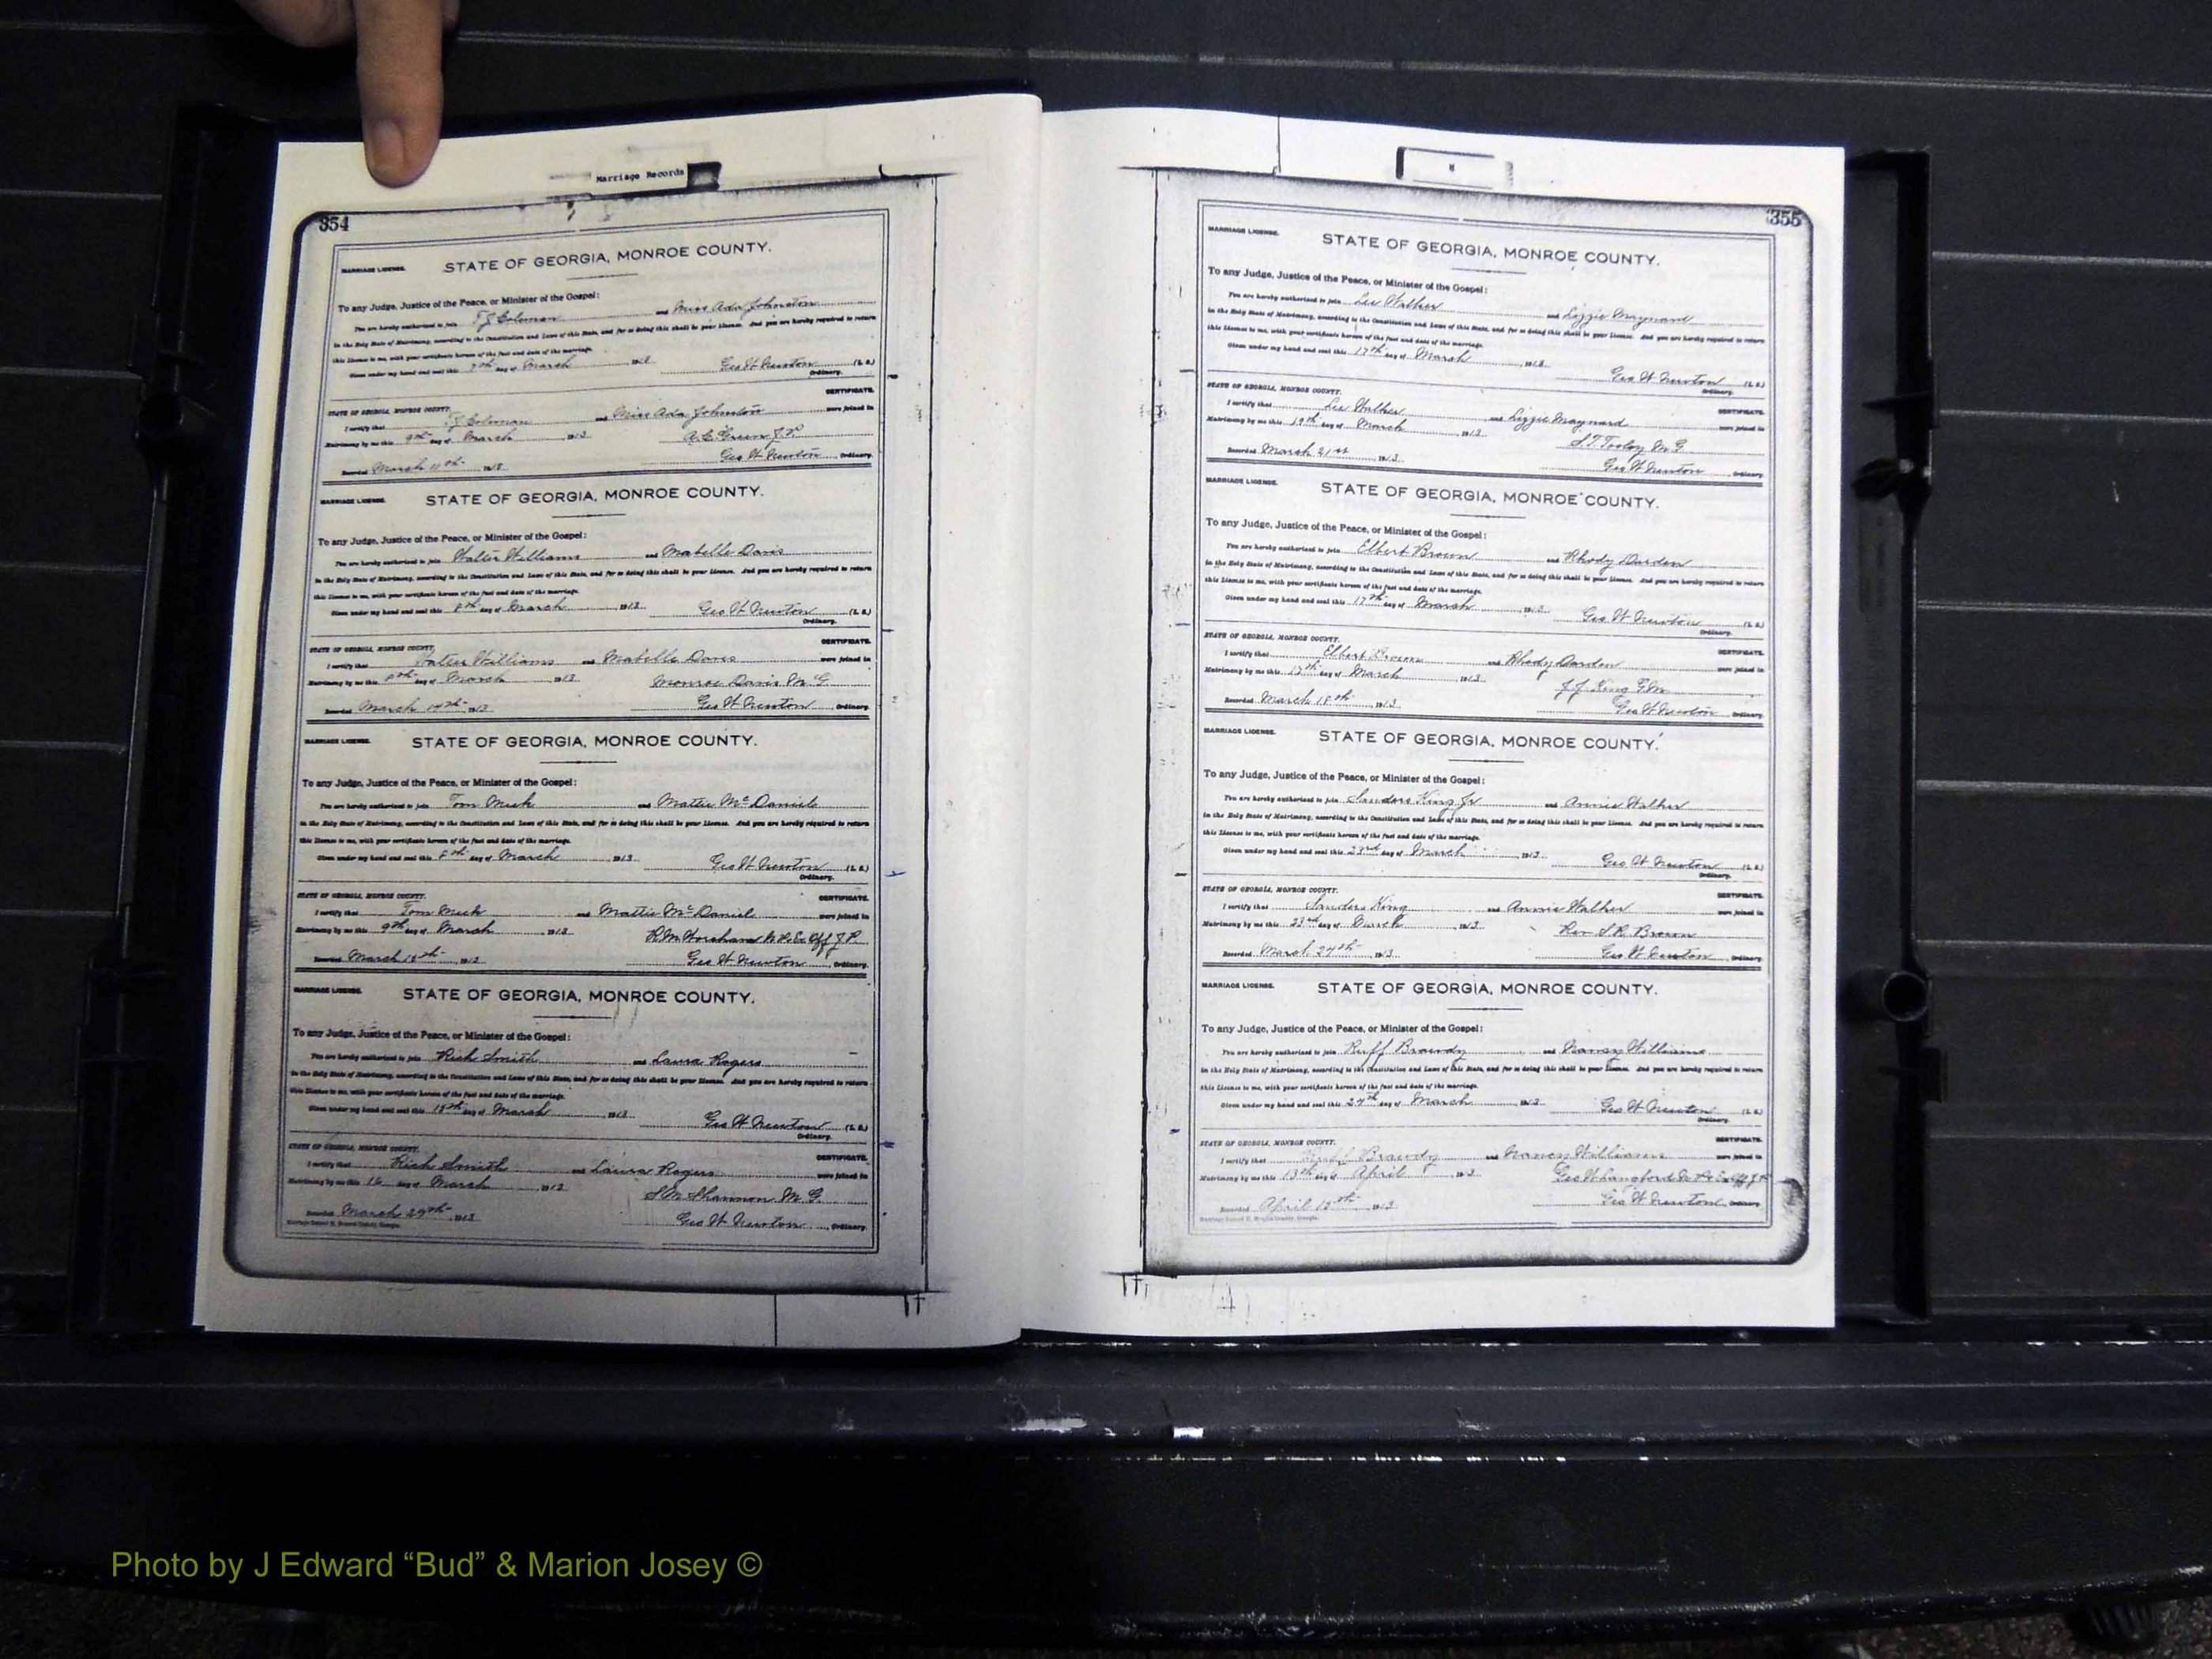 Marriage Records
354
MARRIAGE LICENSE. STATE OF GEORGIA, MONROE COUNTY.
To any Judge, Justice of the Peace, or Minister of the Gospel:
You are hereby authorized to join T J Coleman and Miss Ada Johnston
in the Holy State of Matrimony, according to the Constitution and Laws of this State, and for so doing this shall be your License. And you are hereby required to return
this License to me, with your certificate hereon of the fact and date of the marriage.
Given under my hand and seal this 7th day of March 1913 Geo W Newton (L. S.)
Ordinary.
STATE OF GEORGIA, MONROE COUNTY. CERTIFICATE.
I certify that T J Coleman and Miss Ada Johnston were joined in
Matrimony by me this 9th day of March 1913 A. C. Green J.P.
Recorded March 11th 1913 Geo W Newton Ordinary.
MARRIAGE LICENSE. STATE OF GEORGIA, MONROE COUNTY.
To any Judge, Justice of the Peace, or Minister of the Gospel:
You are hereby authorized to join Walter Williams and Mabelle Davis
in the Holy State of Matrimony, according to the Constitution and Laws of this State, and for so doing this shall be your License. And you are hereby required to return
this License to me, with your certificate hereon of the fact and date of the marriage.
Given under my hand and seal this 8th day of March 1913 Geo W Newton (L. S.)
Ordinary.
STATE OF GEORGIA, MONROE COUNTY. CERTIFICATE.
I certify that Walter Williams and Mabelle Davis were joined in
Matrimony by me this 8th day of March 1913 Monroe Davis M. G.
Recorded March 14th 1913 Geo W Newton Ordinary.
MARRIAGE LICENSE. STATE OF GEORGIA, MONROE COUNTY.
To any Judge, Justice of the Peace, or Minister of the Gospel:
You are hereby authorized to join Tom and Mattie McDaniel
in the Holy State of Matrimony, according to the Constitution and Laws of this State, and for so doing this shall be your License. And you are hereby required to return
this License to me, with your certificate hereon of the fact and date of the marriage.
Given under my hand and seal this 8th day of March 1913 Geo W Newton (L. S.)
Ordinary.
STATE OF GEORGIA, MONROE COUNTY. CERTIFICATE.
I certify that Tom and Mattie McDaniel were joined in
Matrimony by me this 9th day of March 1913 R M Worsham N.P. Ex Off J.P.
Recorded March 15th 1913 Geo W Newton Ordinary.
MARRIAGE LICENSE. STATE OF GEORGIA, MONROE COUNTY.
To any Judge, Justice of the Peace, or Minister of the Gospel:
You are hereby authorized to join Rich Smith and Laura Rogers
in the Holy State of Matrimony, according to the Constitution and Laws of this State, and for so doing this shall be your License. And you are hereby required to return
this License to me, with your certificate hereon of the fact and date of the marriage.
Given under my hand and seal this 15th day of March 1913 Geo W Newton (L. S.)
Ordinary.
STATE OF GEORGIA, MONROE COUNTY. CERTIFICATE.
I certify that Rich Smith and Laura Rogers were joined in
Matrimony by me this 16 day of March 1913 S M Shannon M. G.
Recorded March 29th 1913 Geo W Newton Ordinary.
355
MARRIAGE LICENSE. STATE OF GEORGIA, MONROE COUNTY.
To any Judge, Justice of the Peace, or Minister of the Gospel:
You are hereby authorized to join Lee Walker and Lizzie Maynard
in the Holy State of Matrimony, according to the Constitution and Laws of this State, and for so doing this shall be your License. And you are hereby required to return
this License to me, with your certificate hereon of the fact and date of the marriage.
Given under my hand and seal this 17th day of March 1913 Geo W Newton (L. S.)
Ordinary.
STATE OF GEORGIA, MONROE COUNTY. CERTIFICATE.
I certify that Lee Walker and Lizzie Maynard were joined in
Matrimony by me this 19th day of March 1913 S. T. Tooley M. G.
Recorded March 21st 1913 Geo W Newton Ordinary.
MARRIAGE LICENSE. STATE OF GEORGIA, MONROE COUNTY.
To any Judge, Justice of the Peace, or Minister of the Gospel:
You are hereby authorized to join Elbert Brown and Rhody Durden
in the Holy State of Matrimony, according to the Constitution and Laws of this State, and for so doing this shall be your License. And you are hereby required to return
this License to me, with your certificate hereon of the fact and date of the marriage.
Given under my hand and seal this 17th day of March 1913 Geo W Newton (L. S.)
Ordinary.
STATE OF GEORGIA, MONROE COUNTY. CERTIFICATE.
I certify that Elbert Brown and Rhody Darden were joined in
Matrimony by me this 17th day of March 1913 J. J. King G.M.
Recorded March 18th 1913 Geo W Newton Ordinary.
MARRIAGE LICENSE. STATE OF GEORGIA, MONROE COUNTY.
To any Judge, Justice of the Peace, or Minister of the Gospel:
You are hereby authorized to join Sanders King Jr and Annie Walker
in the Holy State of Matrimony, according to the Constitution and Laws of this State, and for so doing this shall be your License. And you are hereby required to return
this License to me, with your certificate hereon of the fact and date of the marriage.
Given under my hand and seal this 23rd day of March 1913 Geo W Newton (L. S.)
Ordinary.
STATE OF GEORGIA, MONROE COUNTY. CERTIFICATE.
I certify that Sanders King and Annie Walker were joined in
Matrimony by me this 23rd day of March 1913 Rev S. R. Brown
Recorded March 24th 1913 Geo W Newton Ordinary.
MARRIAGE LICENSE. STATE OF GEORGIA, MONROE COUNTY.
To any Judge, Justice of the Peace, or Minister of the Gospel:
You are hereby authorized to join Ruff Brawdy and Nancy Williams
in the Holy State of Matrimony, according to the Constitution and Laws of this State, and for so doing this shall be your License. And you are hereby required to return
this License to me, with your certificate hereon of the fact and date of the marriage.
Given under my hand and seal this 27th day of March 1913 Geo W Newton (L. S.)
Ordinary.
STATE OF GEORGIA, MONROE COUNTY. CERTIFICATE.
I certify that Ruff Brawdy and Nancy Williams were joined in
Matrimony by me this 13th day of April 1913 Geo W Langford N.P. Ex Off J P
Recorded April 15th 1913 Geo W Newton Ordinary.
Photo by J Edward “Bud” & Marion Josey ©